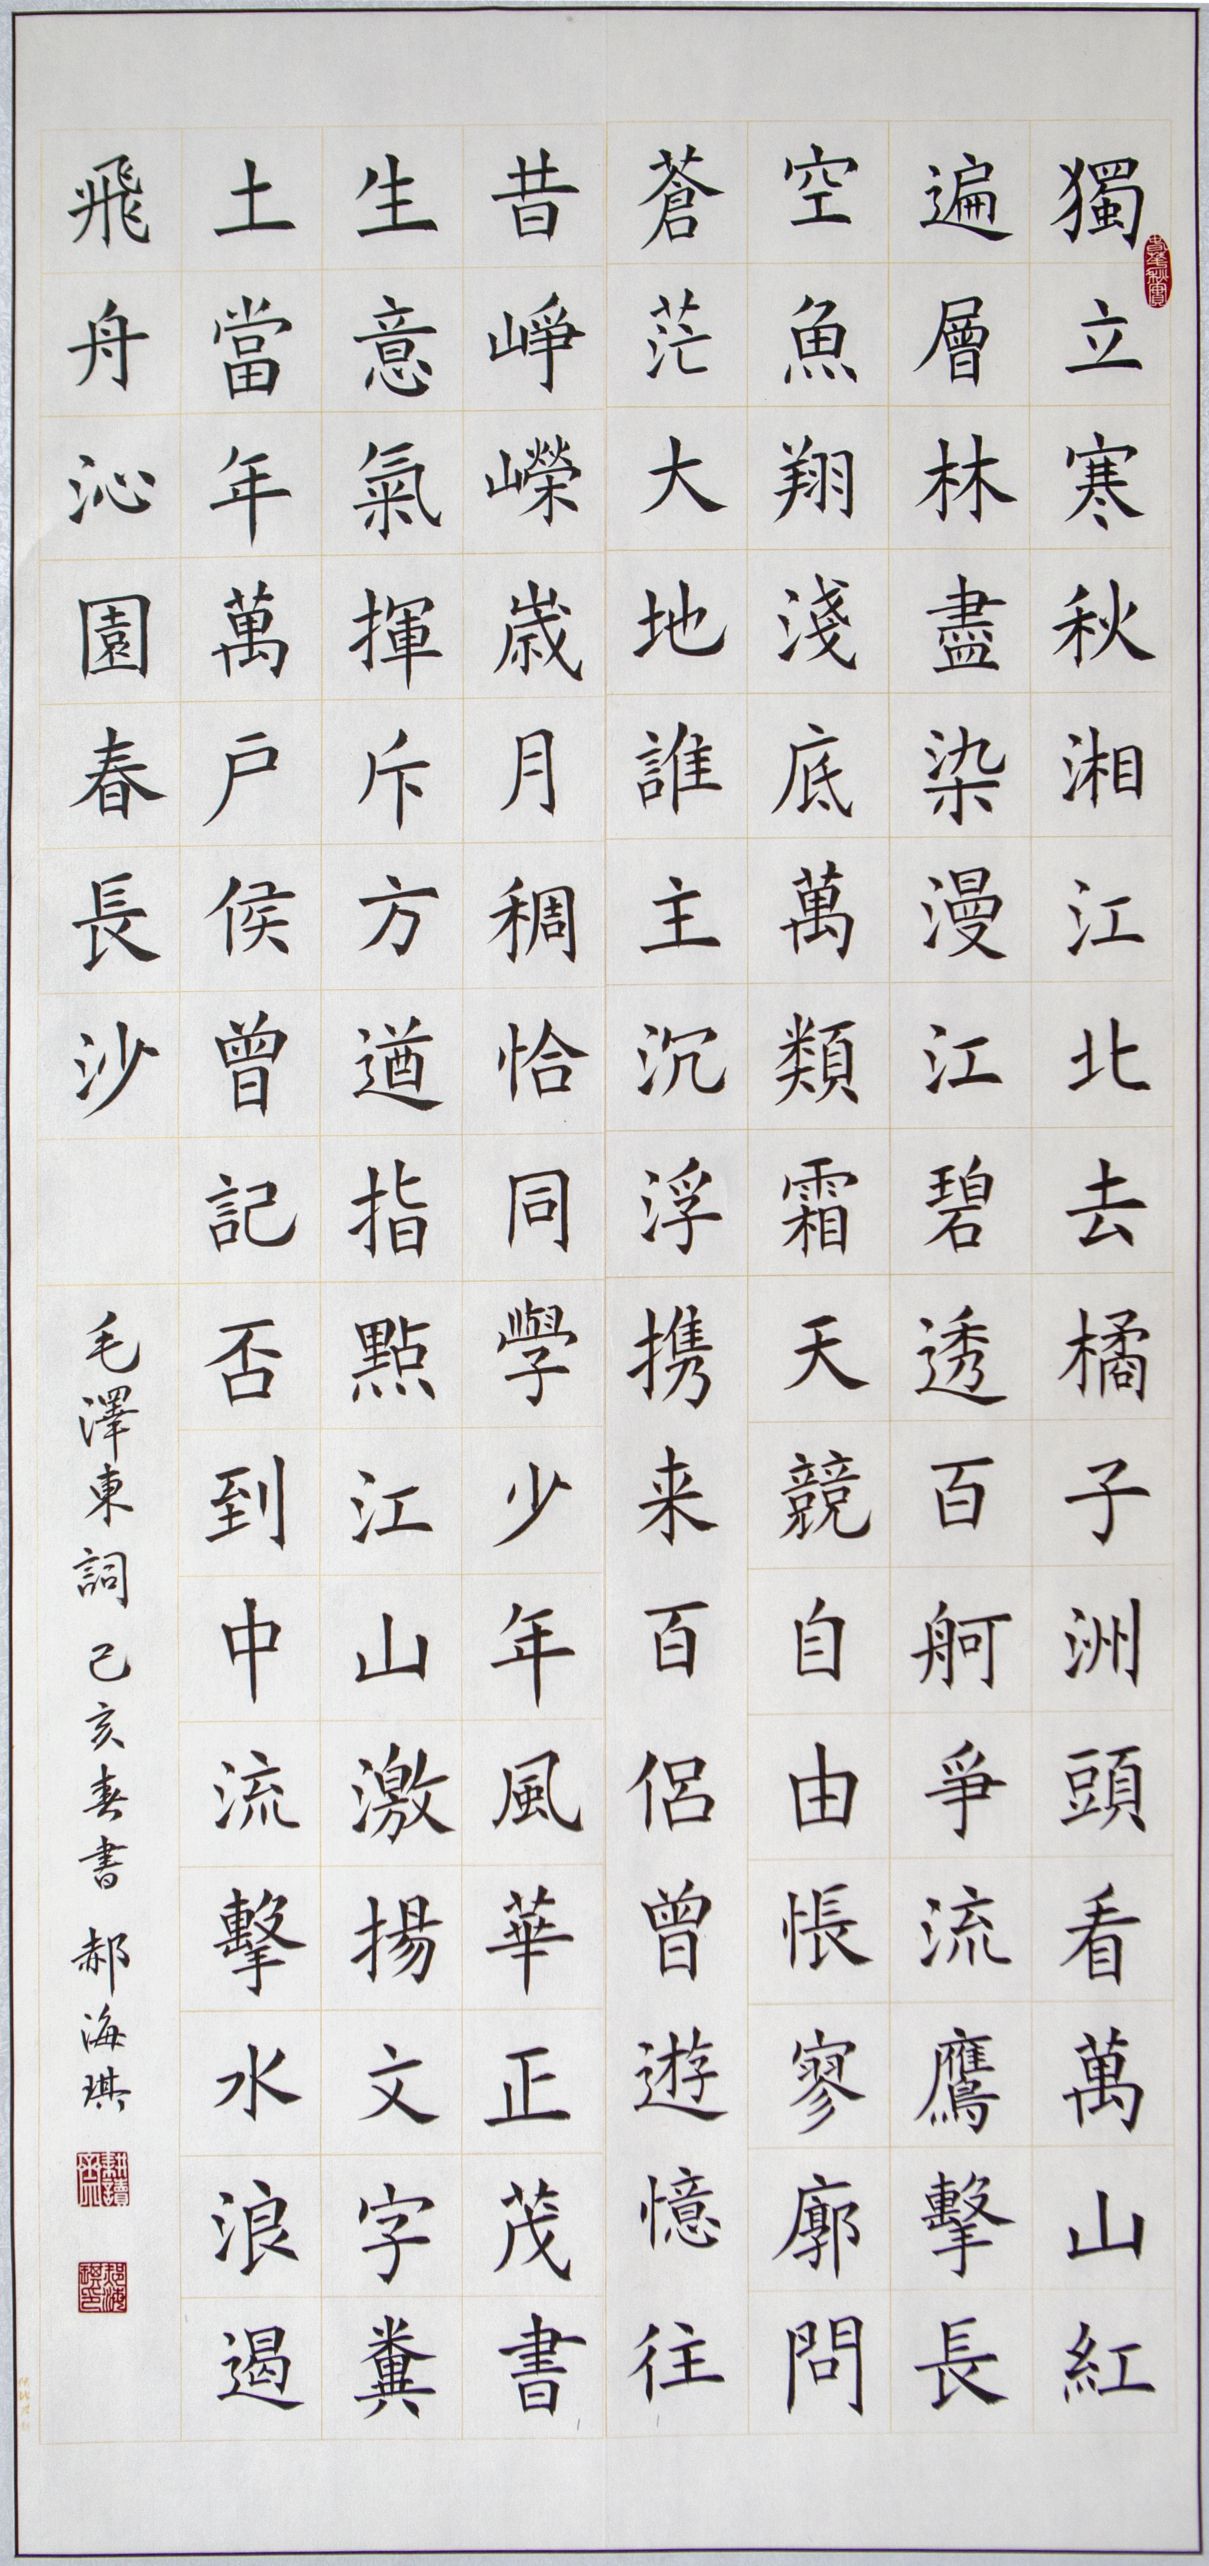 獨立寒秋湘江北去橘子洲頭看萬山紅
遍層林盡染漫江碧透百舸爭流鷹擊長
空魚翔淺底萬類霜天競自由悵寥廓問
蒼茫大地誰主沉浮携来百侣曾遊憶往
昔崢嶸歲月稠恰同學少年風華正茂書
生意氣揮斥方遒指點江山激揚文字糞
土當年萬户侯曾記否到中流擊水浪遏
飛舟沁園春長沙
毛澤東詞 己亥春書 郝海琪
春華秋實